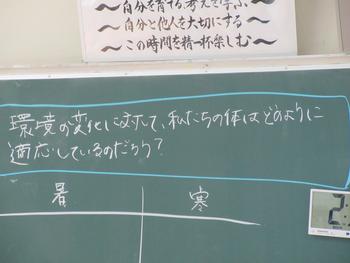 〜自分を育てる考えを学ぶ〜
〜自分と他人を大切にする〜
〜この時間を精一杯楽しむ〜
環境の変化に対して、私たちの体はどのように
適応しているのだろう?
暑
寒